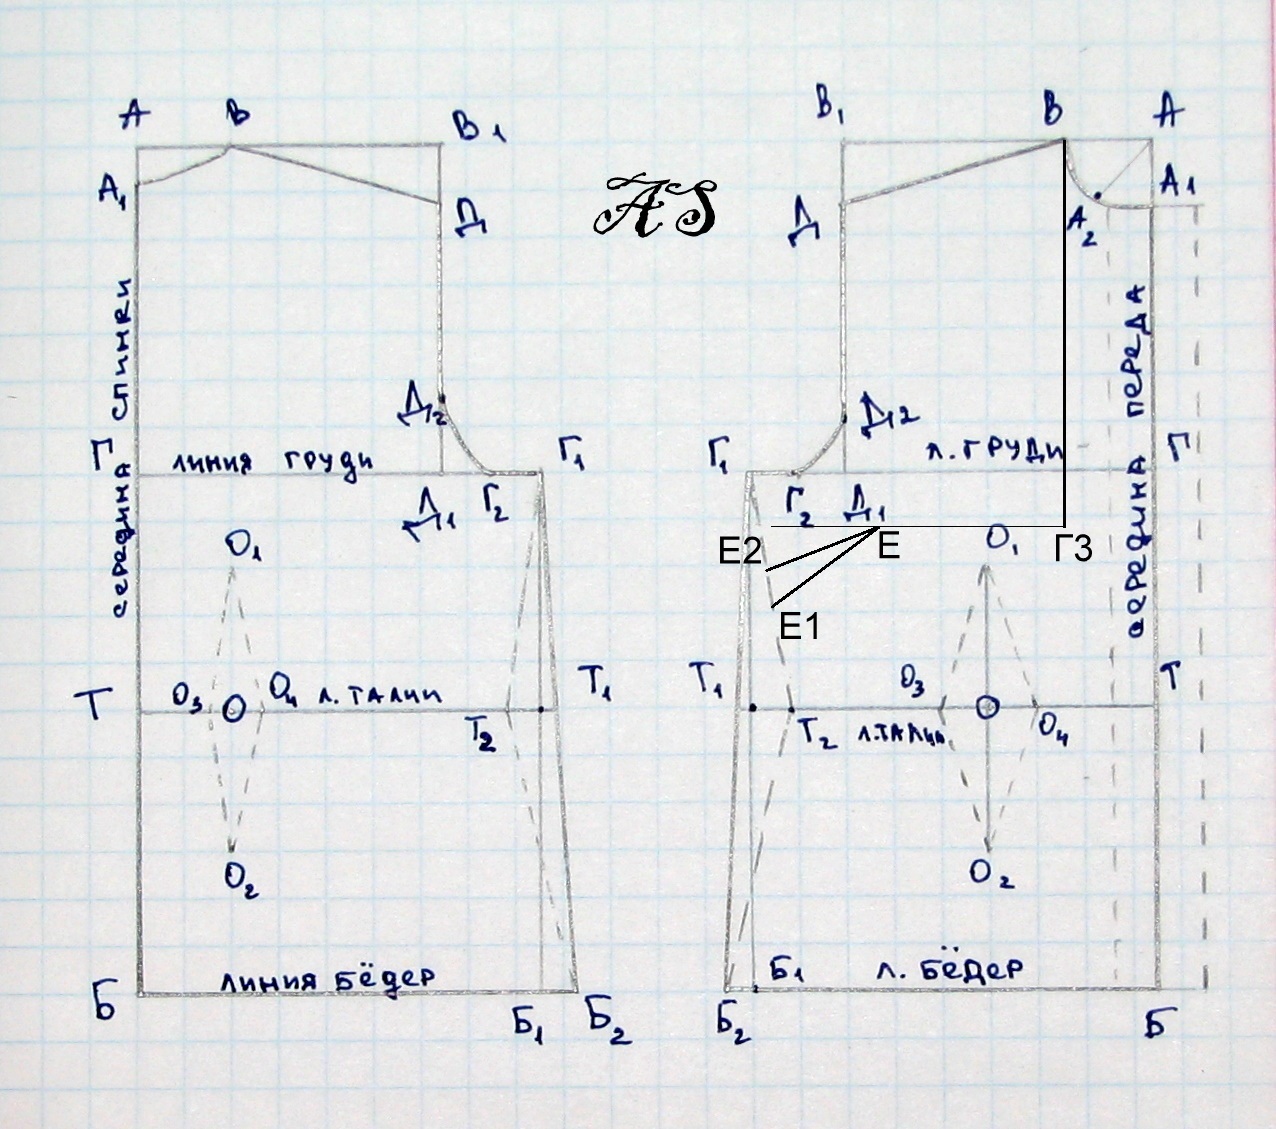 А В В1
А1
Д
середина спинки
Д2
Г линия груди Г1
Д1 Г2
О1
Т О3 О О4 л. талии Т1
Т2
О2
Б линия бёдер
Б1 Б2
AS
В1 В А
А1
Д А2
середина переда
Д2
Г1 л. груди Г
Г2 Д1
Е2 Е О1 Г3
Е1
Т1 О3 Т
Т2 л. талии О О4
О2
Б1 л. бёдер
Б2 Б